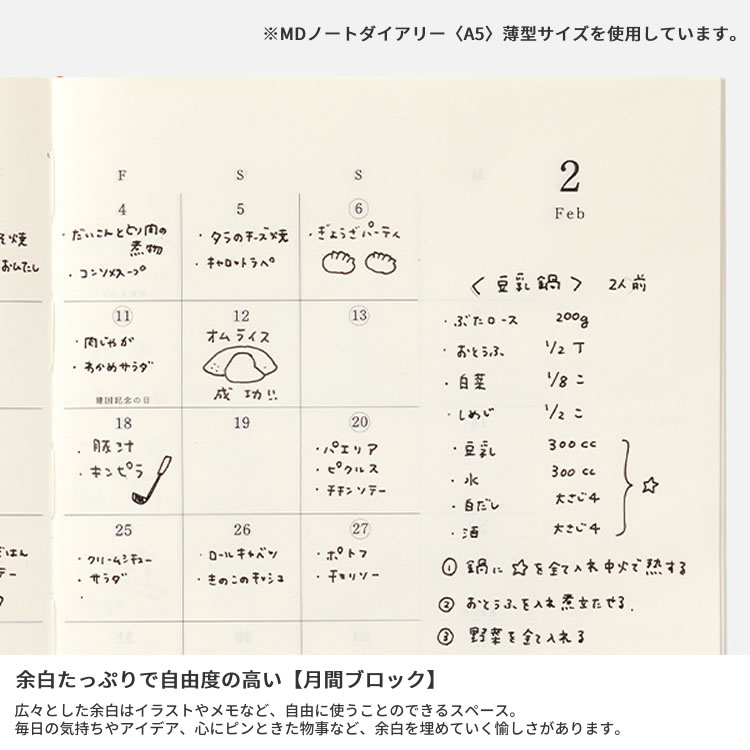 ※MDノートダイアリー〈A5〉薄型サイズを使用しています。
2
Feb
F S S
4 5 ⑥
・だいこんととり肉の煮物
・コンソメスープ
・タラのチーズ焼
・キャロットラペ
・ぎょうざパーティ
焼
おひたし
⑪ 12 ⑬
・肉じゃが
・わかめサラダ
建国記念の日
オムライス
成功!!
18 19 ⑳
・豚汁
・キンピラ
・パエリア
・ピクルス
・チキンソテー
25 26 ㉗
・クリームシチュー
・サラダ
・
・ロールキャベツ
・きのこのキッシュ
・ポトフ
・チョリソー
ごはん
テー
〈豆乳鍋〉 2人前
・ぶたロース 200g
・おとうふ 1/2丁
・白菜 1/8コ
・しめじ 1/2コ
・豆乳 300cc
・水 300cc
・白だし 大さじ4
・酒 大さじ4
☆
① 鍋に☆を全て入れ中火で熱する
② おとうふを入れ煮立たせる.
③ 野菜を全て入れる
余白たっぷりで自由度の高い【月間ブロック】
広々とした余白はイラストやメモなど、自由に使うことのできるスペース。
毎日の気持ちやアイデア、心にピンときた物事など、余白を埋めていく愉しさがあります。